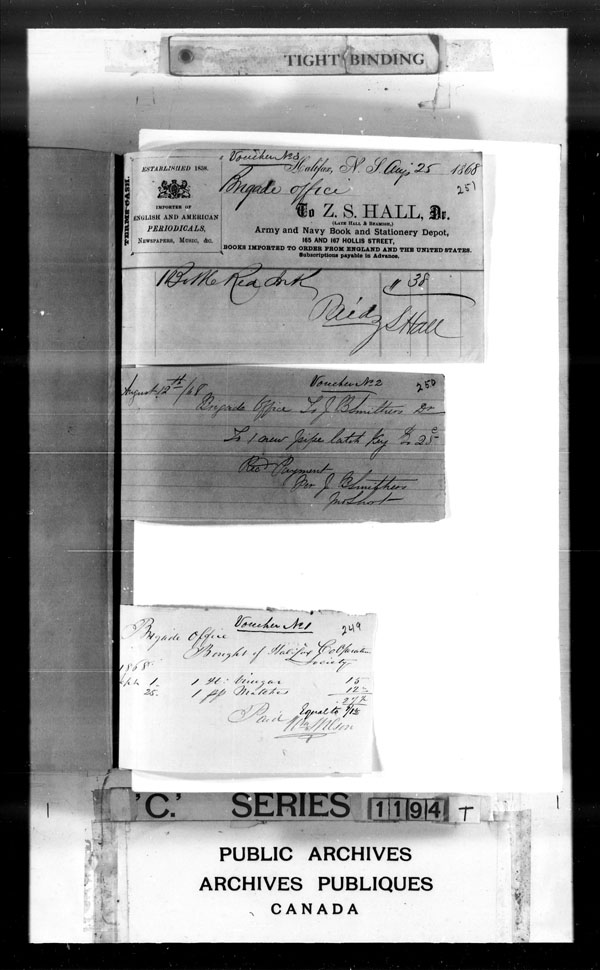 TIGHT BINDING
Voucher No 3
Halifax, N. S. Aug 25 1868
251
Brigade Office
TERMS CASH.
ESTABLISHED 1838.
IMPORTER OF
ENGLISH AND AMERICAN
PERIODICALS,
NEWSPAPERS, MUSIC, &c.
To Z. S. HALL, Dr.
(LATE HALL & BEAMISH,)
Army and Navy Book and Stationery Depot,
165 AND 167 HOLLIS STREET,
BOOKS IMPORTED TO ORDER FROM ENGLAND AND THE UNITED STATES.
Subscriptions payable in Advance.
1 Bottle Red Ink " 38
Recd Z S Hall
Voucher No 2 250
August 12th /68
Brigade Office To J. B Smithers Dr
To 1 new pipe latch Key 25c
Recd Payment
for J B Smithers
Voucher No 1 249
Brigade Office
Bought of Halifax Co Operative
Society
1868
1. 1 Vinegar 15
25. 1 Matches 12
27
Paid Equal to
Wilson
'C.' SERIES 1194 T
PUBLIC ARCHIVES
ARCHIVES PUBLIQUES
CANADA